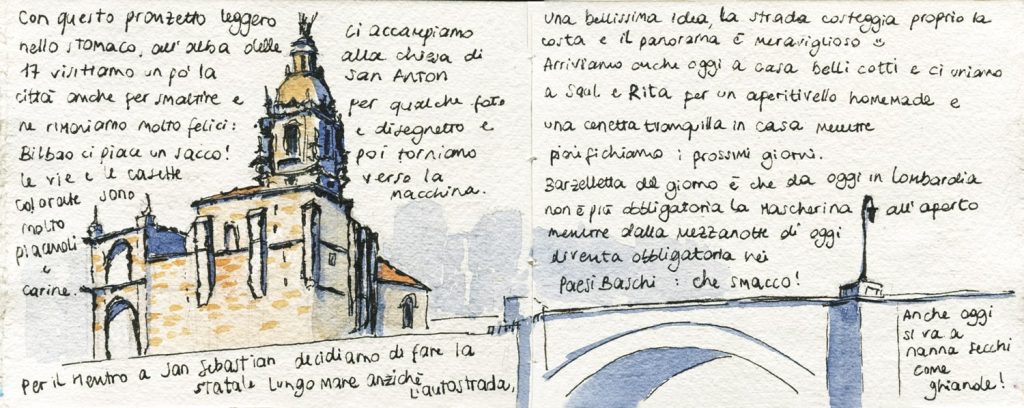 Con questo pranzetto leggero
nello stomaco, all'alba delle
17 visitiamo un po' la
città anche per smaltire e
ne rimaniamo molto felici:
Bilbao ci piace un sacco!
Le vie e le casette
colorate sono
molto
piacevoli
e
carine.
Ci accampiamo
alla chiesa di
San Anton
per qualche foto
e disegnetto e
poi torniamo
verso la
macchina.
Per il rientro a San Sebastian decidiamo di fare la
statale lungo mare anziché
l'autostrada,
una bellissima idea, la strada costeggia proprio la
costa e il panorama è meraviglioso
Arriviamo anche oggi a casa belli cotti e ci uniamo
a Saul e Rita per un aperitivello homemade e
una cenetta tranquilla in casa mentre
pianifichiamo i prossimi giorni.
Barzelletta del giorno è che da oggi in Lombardia
non è più obbligatoria la mascherina all'aperto
mentre dalla mezzanotte di oggi
diventa obbligatoria nei
Paesi Baschi: che smacco!
Anche oggi
si va a
nanna secchi
come
ghiande!